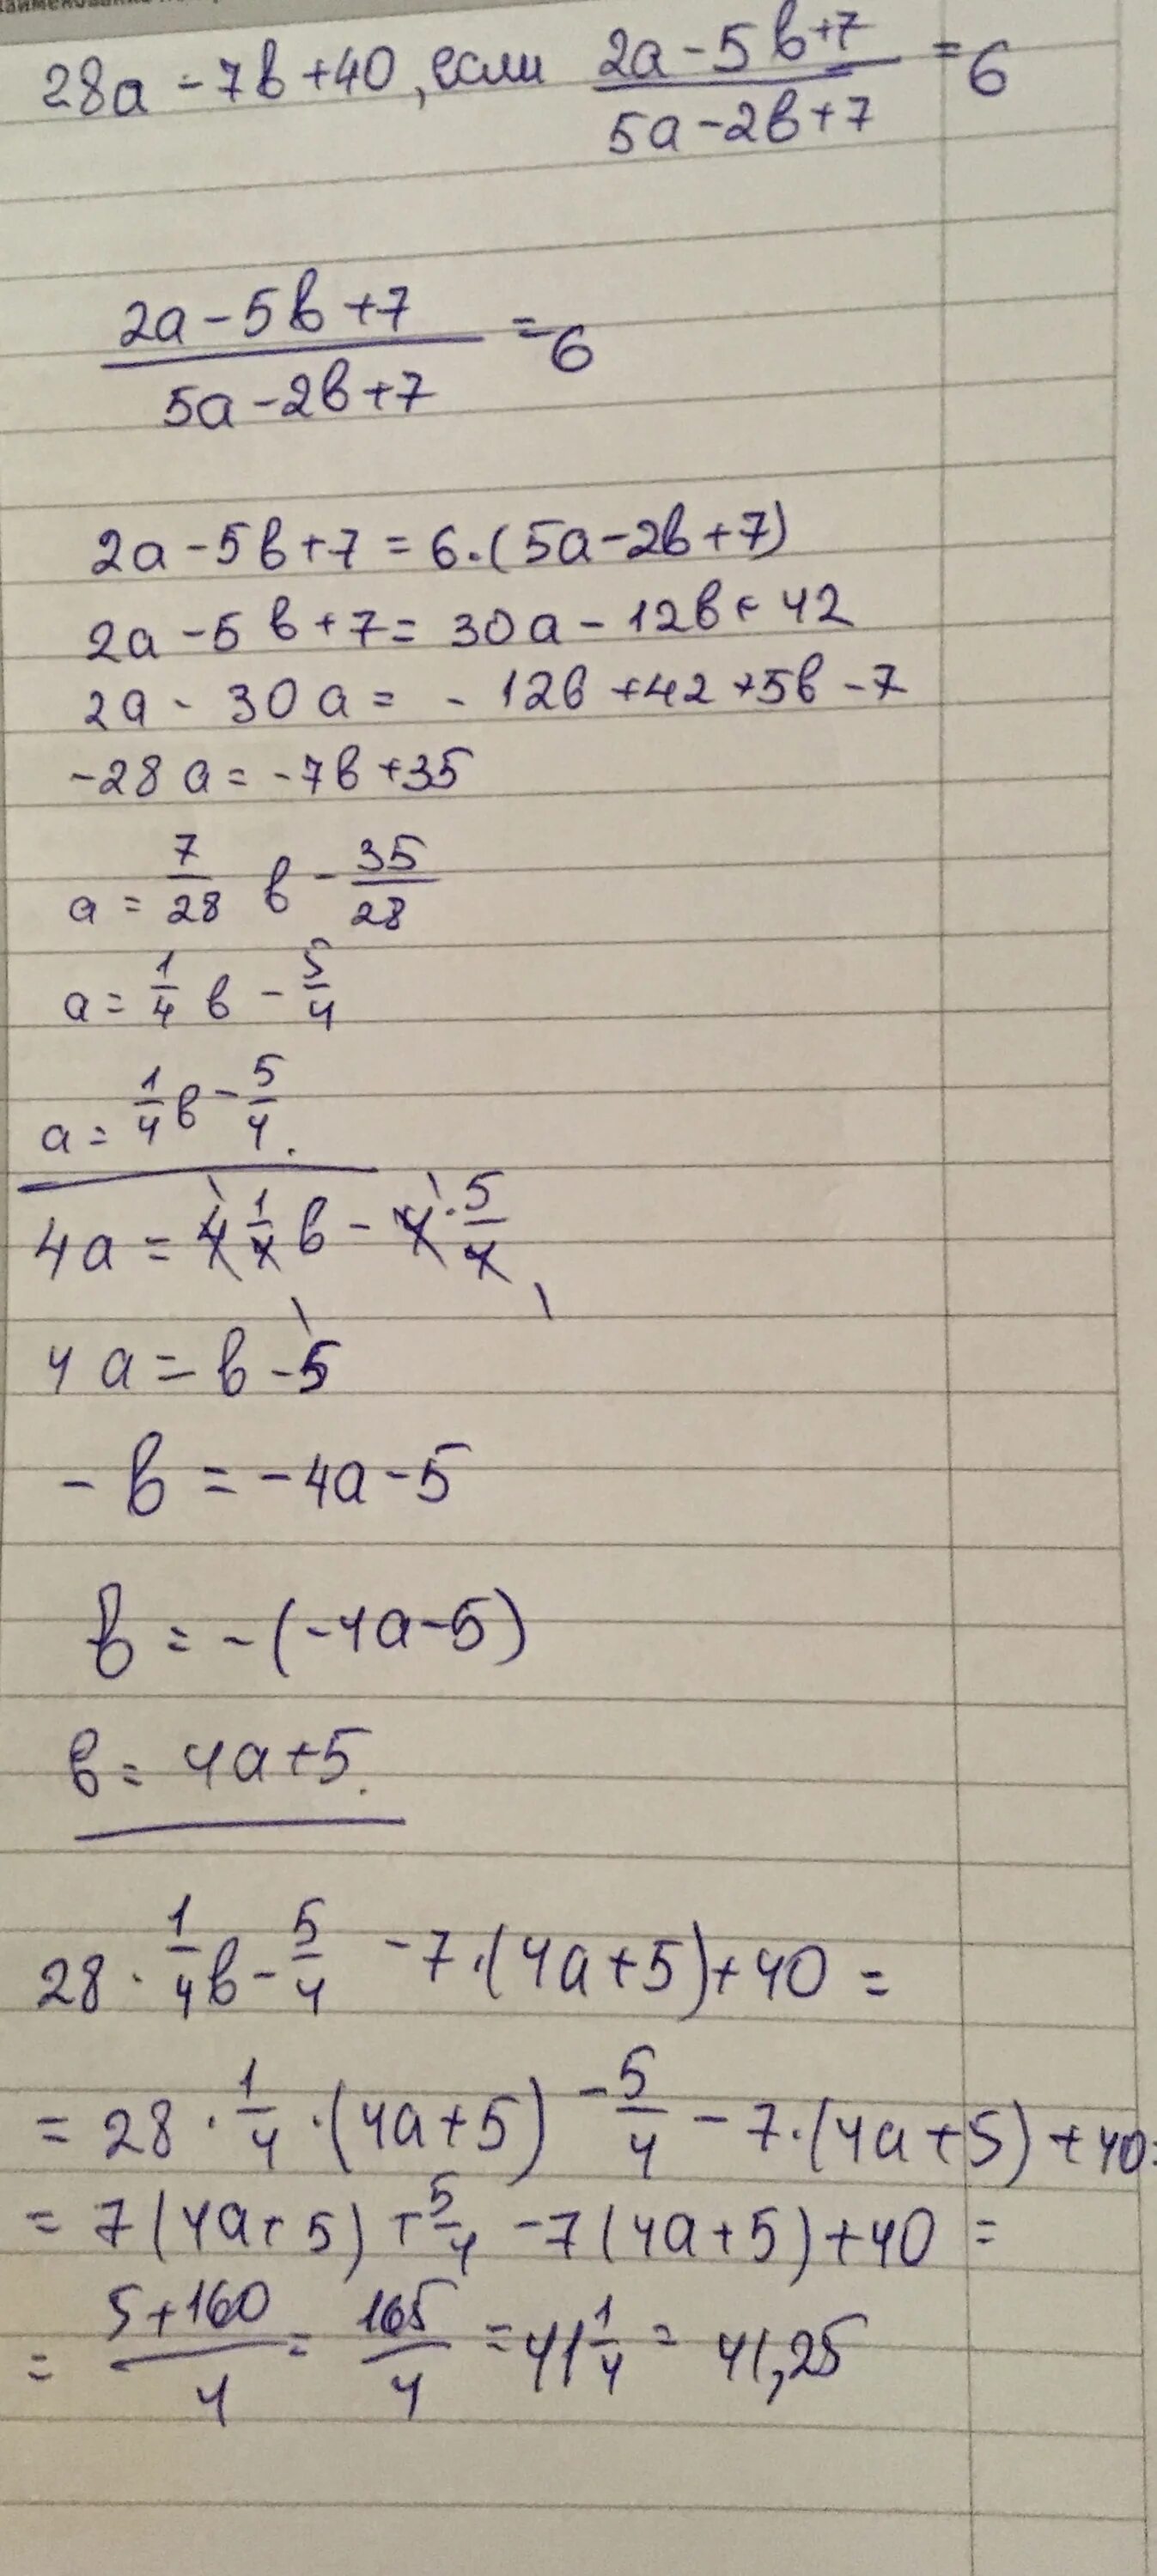 28a - 7b + 40, если (2a - 5b + 7)/(5a - 2b + 7) = 6
(2a - 5b + 7)/(5a - 2b + 7) = 6
2a - 5b + 7 = 6·(5a - 2b + 7)
2a - 5b + 7 = 30a - 12b + 42
2a - 30a = -12b + 42 + 5b - 7
-28a = -7b + 35
a = 7/28 b - 35/28
a = 1/4 b - 5/4
a = 1/4 b - 5/4.
4a = 4 1/4 b - 4 · 5/4
4a = b - 5
-b = -4a - 5
b = -(-4a - 5)
b = 4a + 5.
28 · 1/4 b - 5/4 - 7·(4a + 5) + 40 =
= 28 · 1/4 · (4a + 5) - 5/4 - 7·(4a + 5) + 40 =
= 7(4a + 5) + 5/4 - 7(4a + 5) + 40 =
= (5 + 160)/4 = 165/4 = 41 1/4 = 41,25